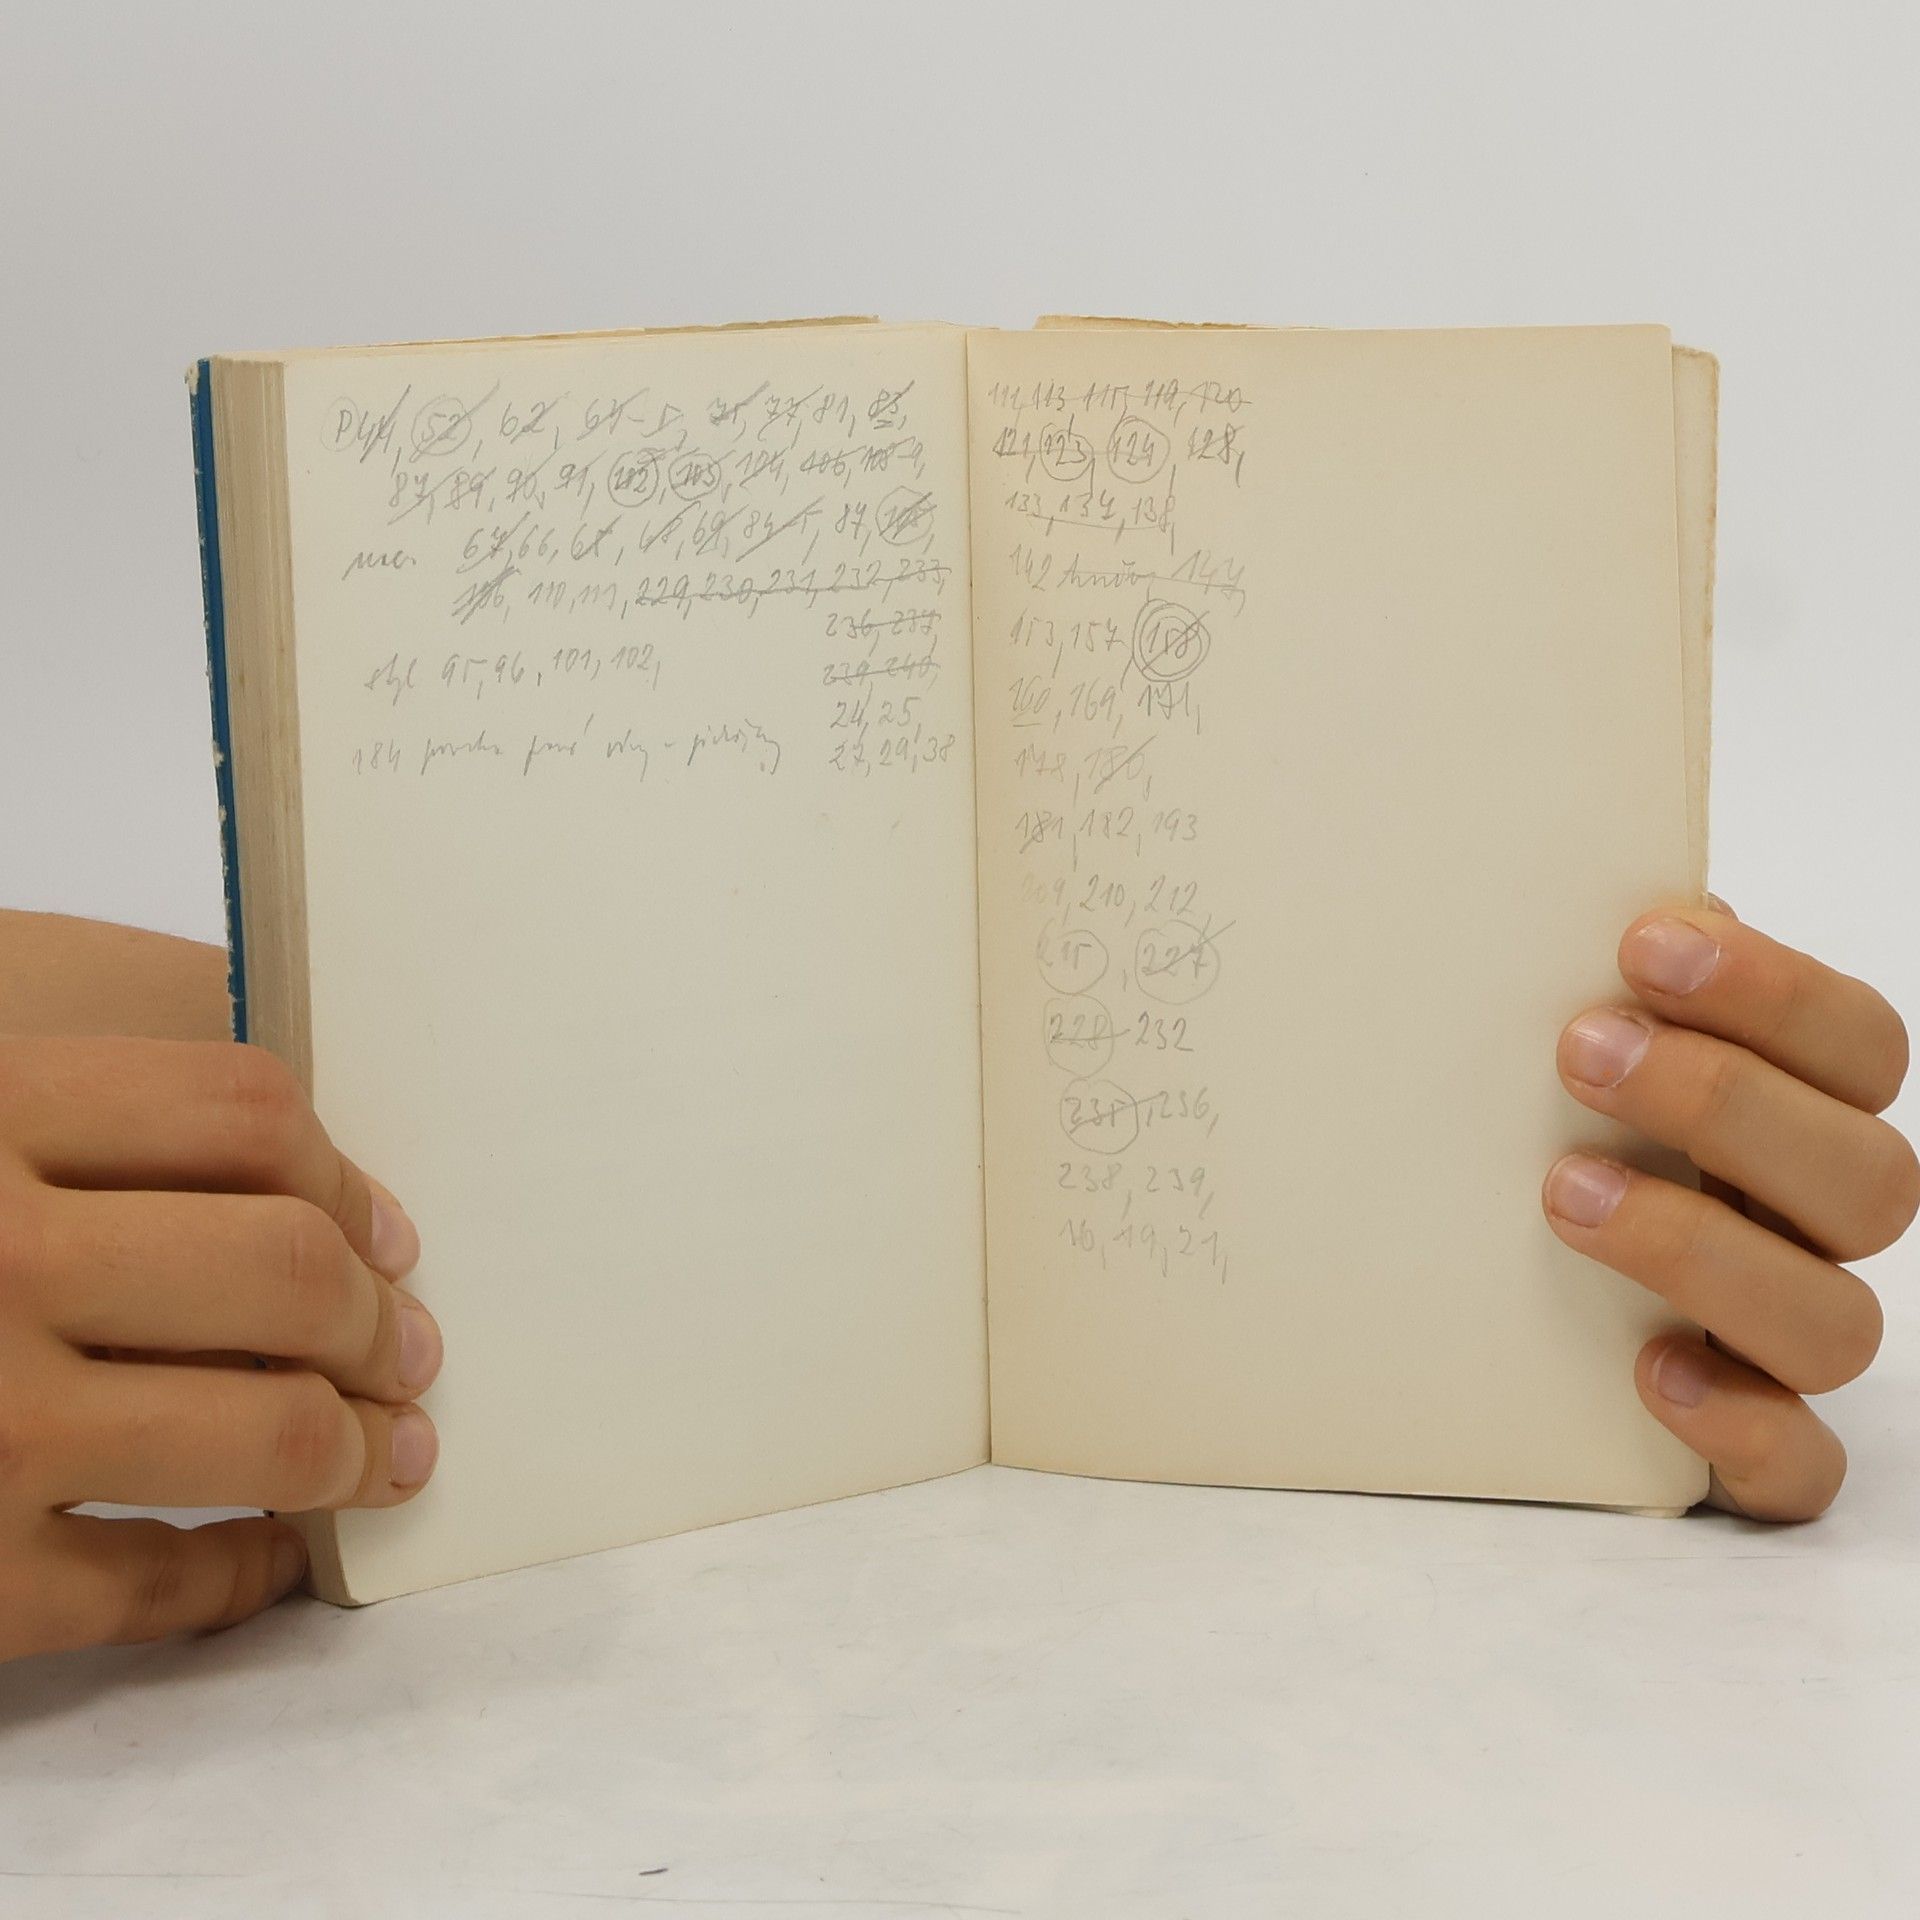 P 44, 52, 62, 64-5, 75, 77, 81, 83,
87, 89, 90, 91, 102, 103, 104, 106, 108-9,
64, 66, 68, 69, 84-5, 87,
106, 110, 111, 229, 230, 231, 232, 233,
236, 237,
styl 95, 96, 101, 102,
239, 240,
24, 25,
184
27, 29, 38
111, 113, 115, 119, 120
121, 123, 124, 128,
133, 134, 138,
142 144,
153, 157, 158
160, 169, 171,
178, 180,
181, 182, 193
209, 210, 212,
215, 227
228-232
235, 236,
238, 239,
16, 19, 21,